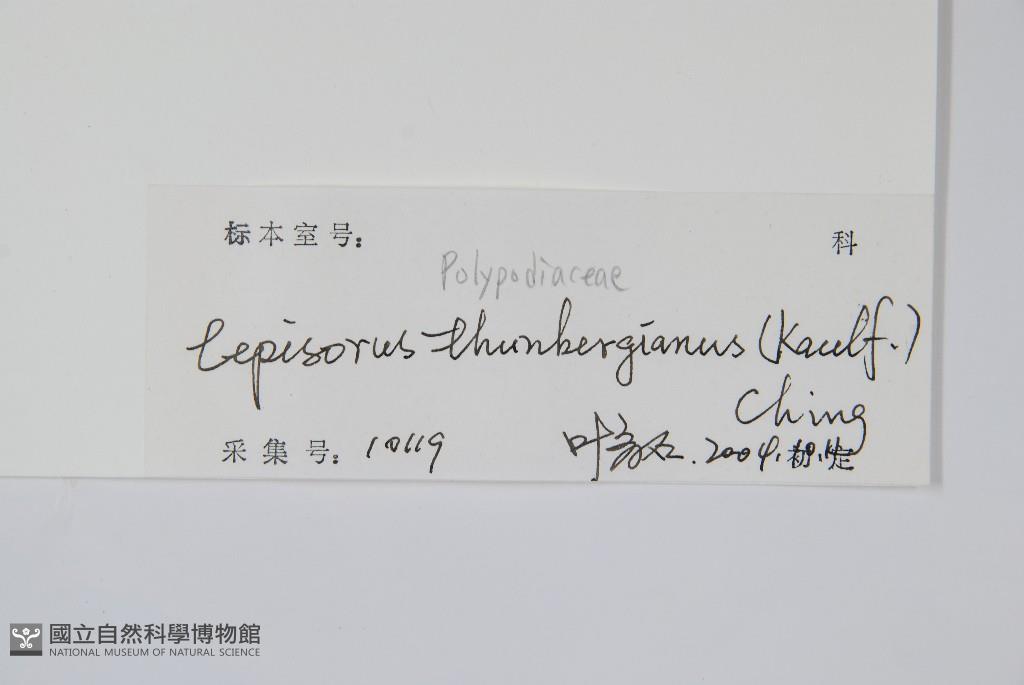 标本室号： 科
Polypodiaceae
Lepisorus thunbergianus (Kaulf.)
Ching
采集号：10119 叶 . 2004. 初定
國立自然科學博物館
NATIONAL MUSEUM OF NATURAL SCIENCE